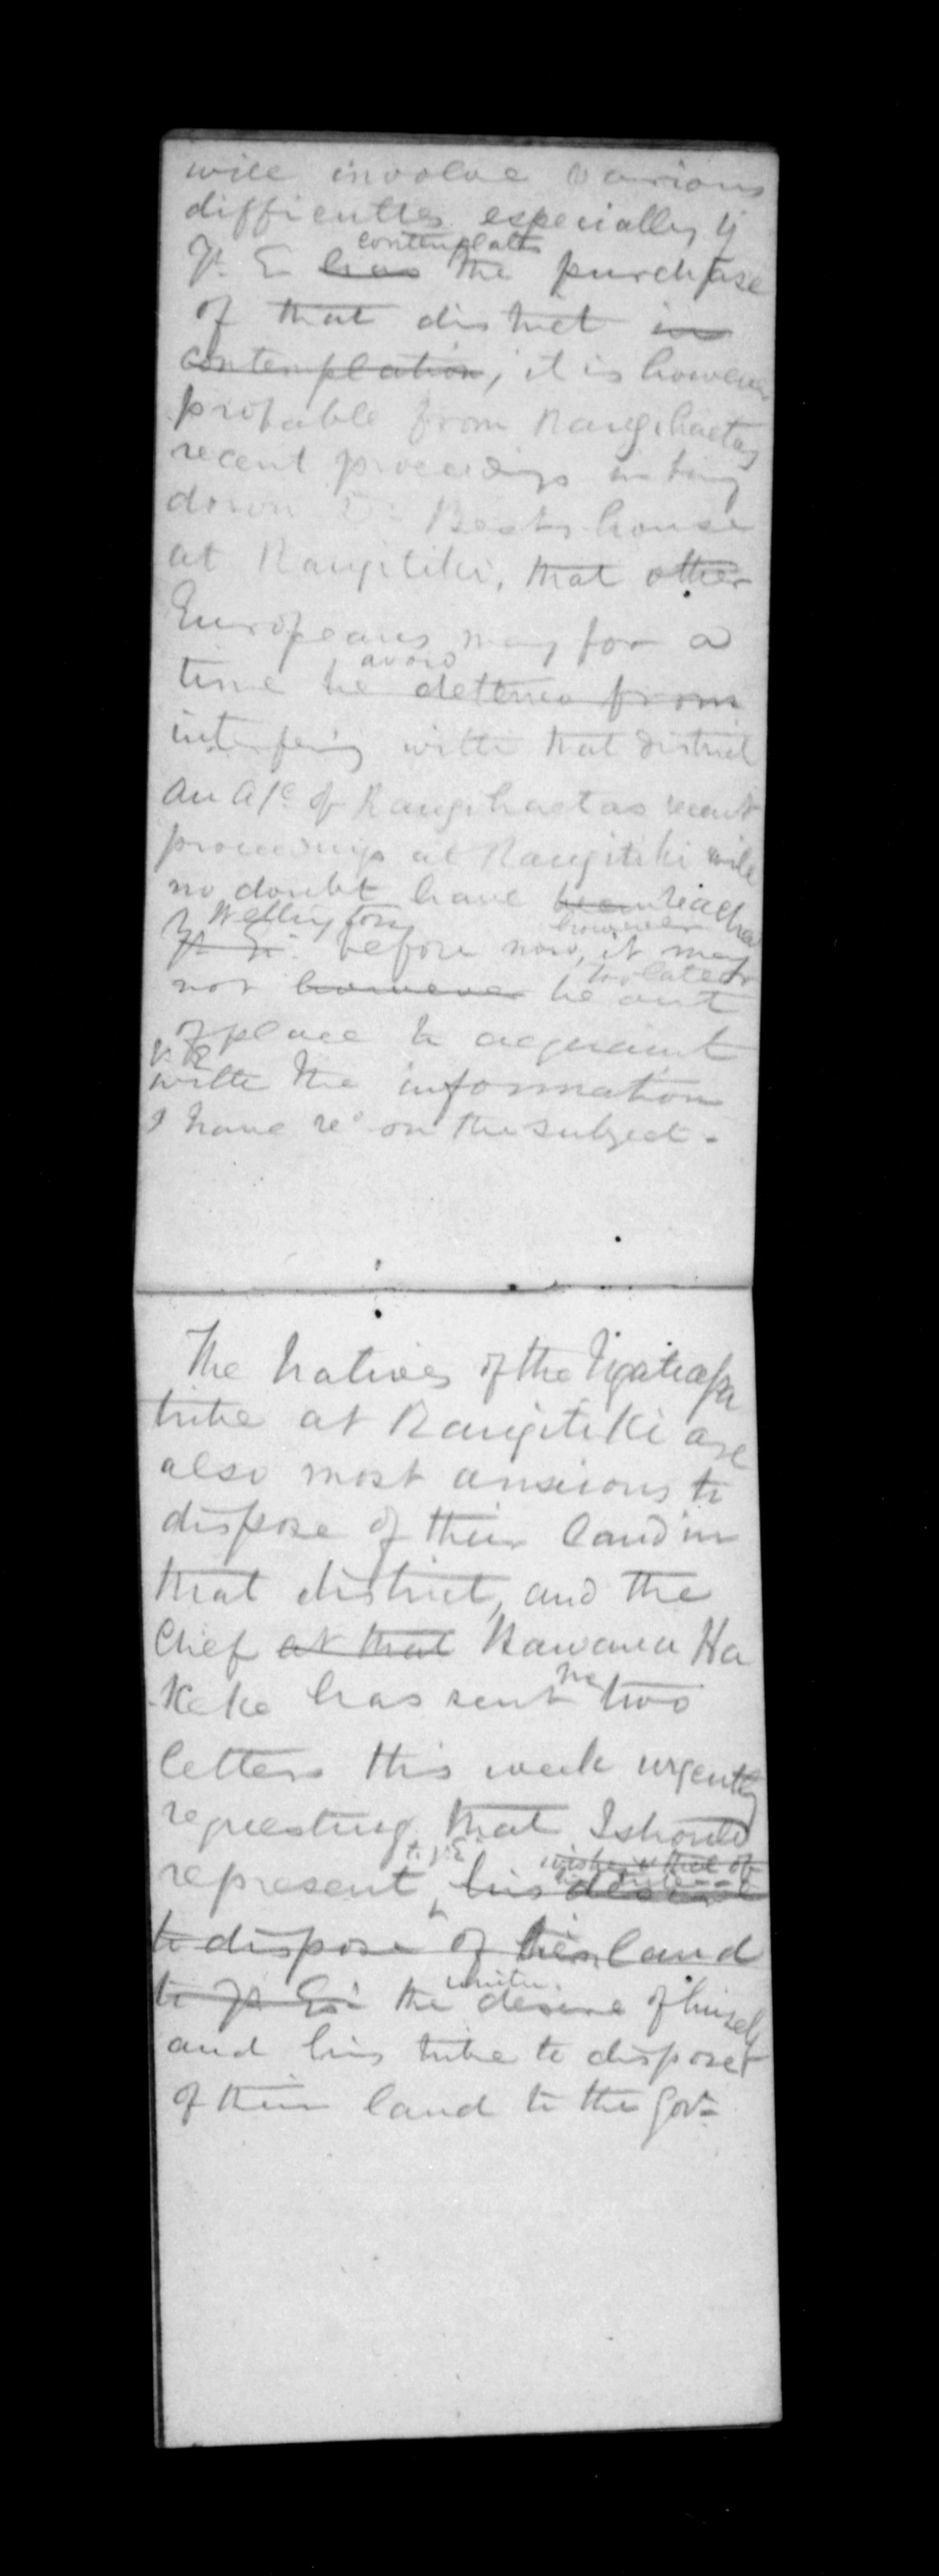 will involve various
difficulties especially if
contemplates
H. E. has the purchase
of that district in
contemplation, it is however
probable from Rangihaetas
recent proceedings in
down Dr Bests house
at Rangitiki, that other
Europeans may for a
avoid
time be deterred from
interfering with that district
An a/c of Rangihaetas recent
proceedings at Rangitiki will
no doubt have been reached
Wellington however
H. E. before now, it may
not however be out
of place to acquaint
H. E.
with the information
I have recd on the subject.
The Natives of the Ngatiapa
tribe at Rangitiki are
also most anxious to
dispose of their land in
that district, and the
Chief at that Kawana Ha
keke has sent me two
letters this week urgently
requesting that I should
to H. E. wishes & that of
represent his desire
to dispose of his land
to H. E. the desire of himself
and his tribe to dispose
of their land to the Govt